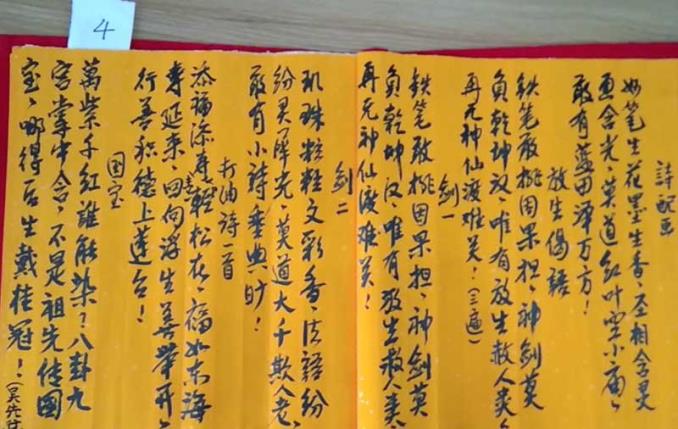 4
詩配画
如笔生花墨生香、圣相含灵
更含光、莫道红叶堂小庙、
敢有蓝田泽万方!
放生偈語
铁笔敢挑因果担、神剑莫
負乾坤汉、唯有放生救人类、
再无神仙渡难关!(三遍)
剑一
铁笔敢挑因果担、神剑莫
負乾坤汉、唯有放生救人类、
再无神仙渡难关!
剑二
玑珠粒粒文彩香、法語纷
纷灵犀光、莫道大千欺人老、
敢有小詩垂典旷!
打油詩一首
添福添寿轻松在、福如东海
寿延来、回向浮生善举开、
行善积德上莲台!
国宝
萬紫千红誰能染?八卦九
宫掌中含、不是祖先传国
宝、哪得后生戴桂冠!(吴先